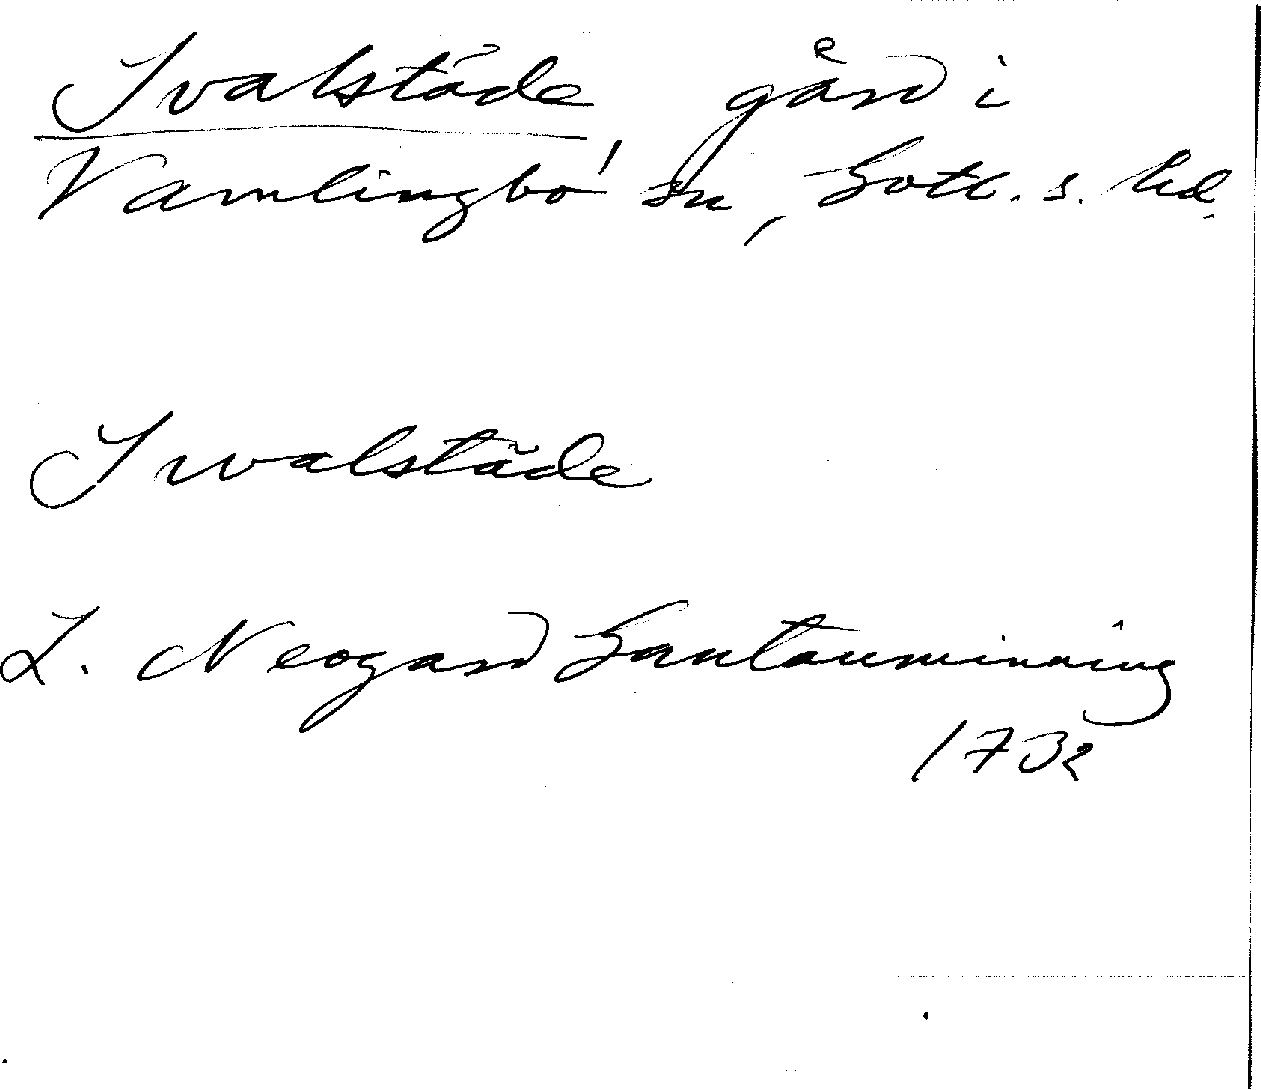 Ivalstäde gård i
Vamlingbo sn, Gotl. s. hd.
Iwalstäde
L. Neogard Gautauminning
1732